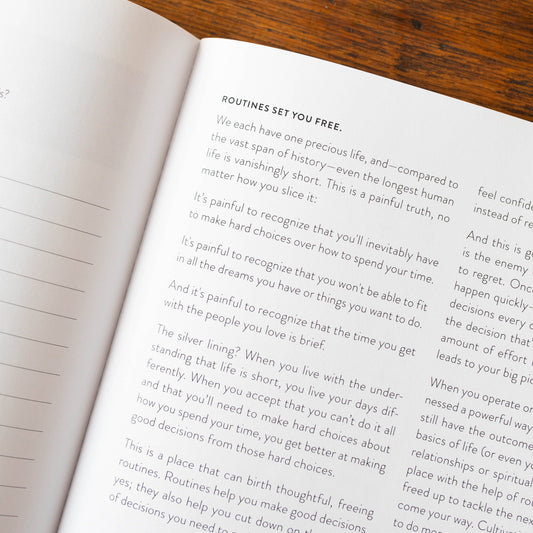 s?
ROUTINES SET YOU FREE.
We each have one precious life, and—compared to
the vast span of history—even the longest human
life is vanishingly short. This is a painful truth, no
matter how you slice it:
It's painful to recognize that you'll inevitably have
to make hard choices over how to spend your time.
It's painful to recognize that you won't be able to fit
in all the dreams you have or things you want to do.
And it's painful to recognize that the time you get
with the people you love is brief.
The silver lining? When you live with the under-
standing that life is short, you live your days dif-
ferently. When you accept that you can't do it all
and that you'll need to make hard choices about
how you spend your time, you get better at making
good decisions from those hard choices.
This is a place that can birth thoughtful, freeing
routines. Routines help you make good decisions,
yes; they also help you cut down on the
of decisions you need to
feel confide
instead of re
And this is g
is the enemy
to regret. Onc
happen quickly—
decisions every
the decision that'
amount of effort
leads to your big pic
When you operate or
nessed a powerful way
still have the outcome
basics of life (or even yo
relationships or spiritual
place with the help of rou
freed up to tackle the nex
come your way. Cultiv
to do more